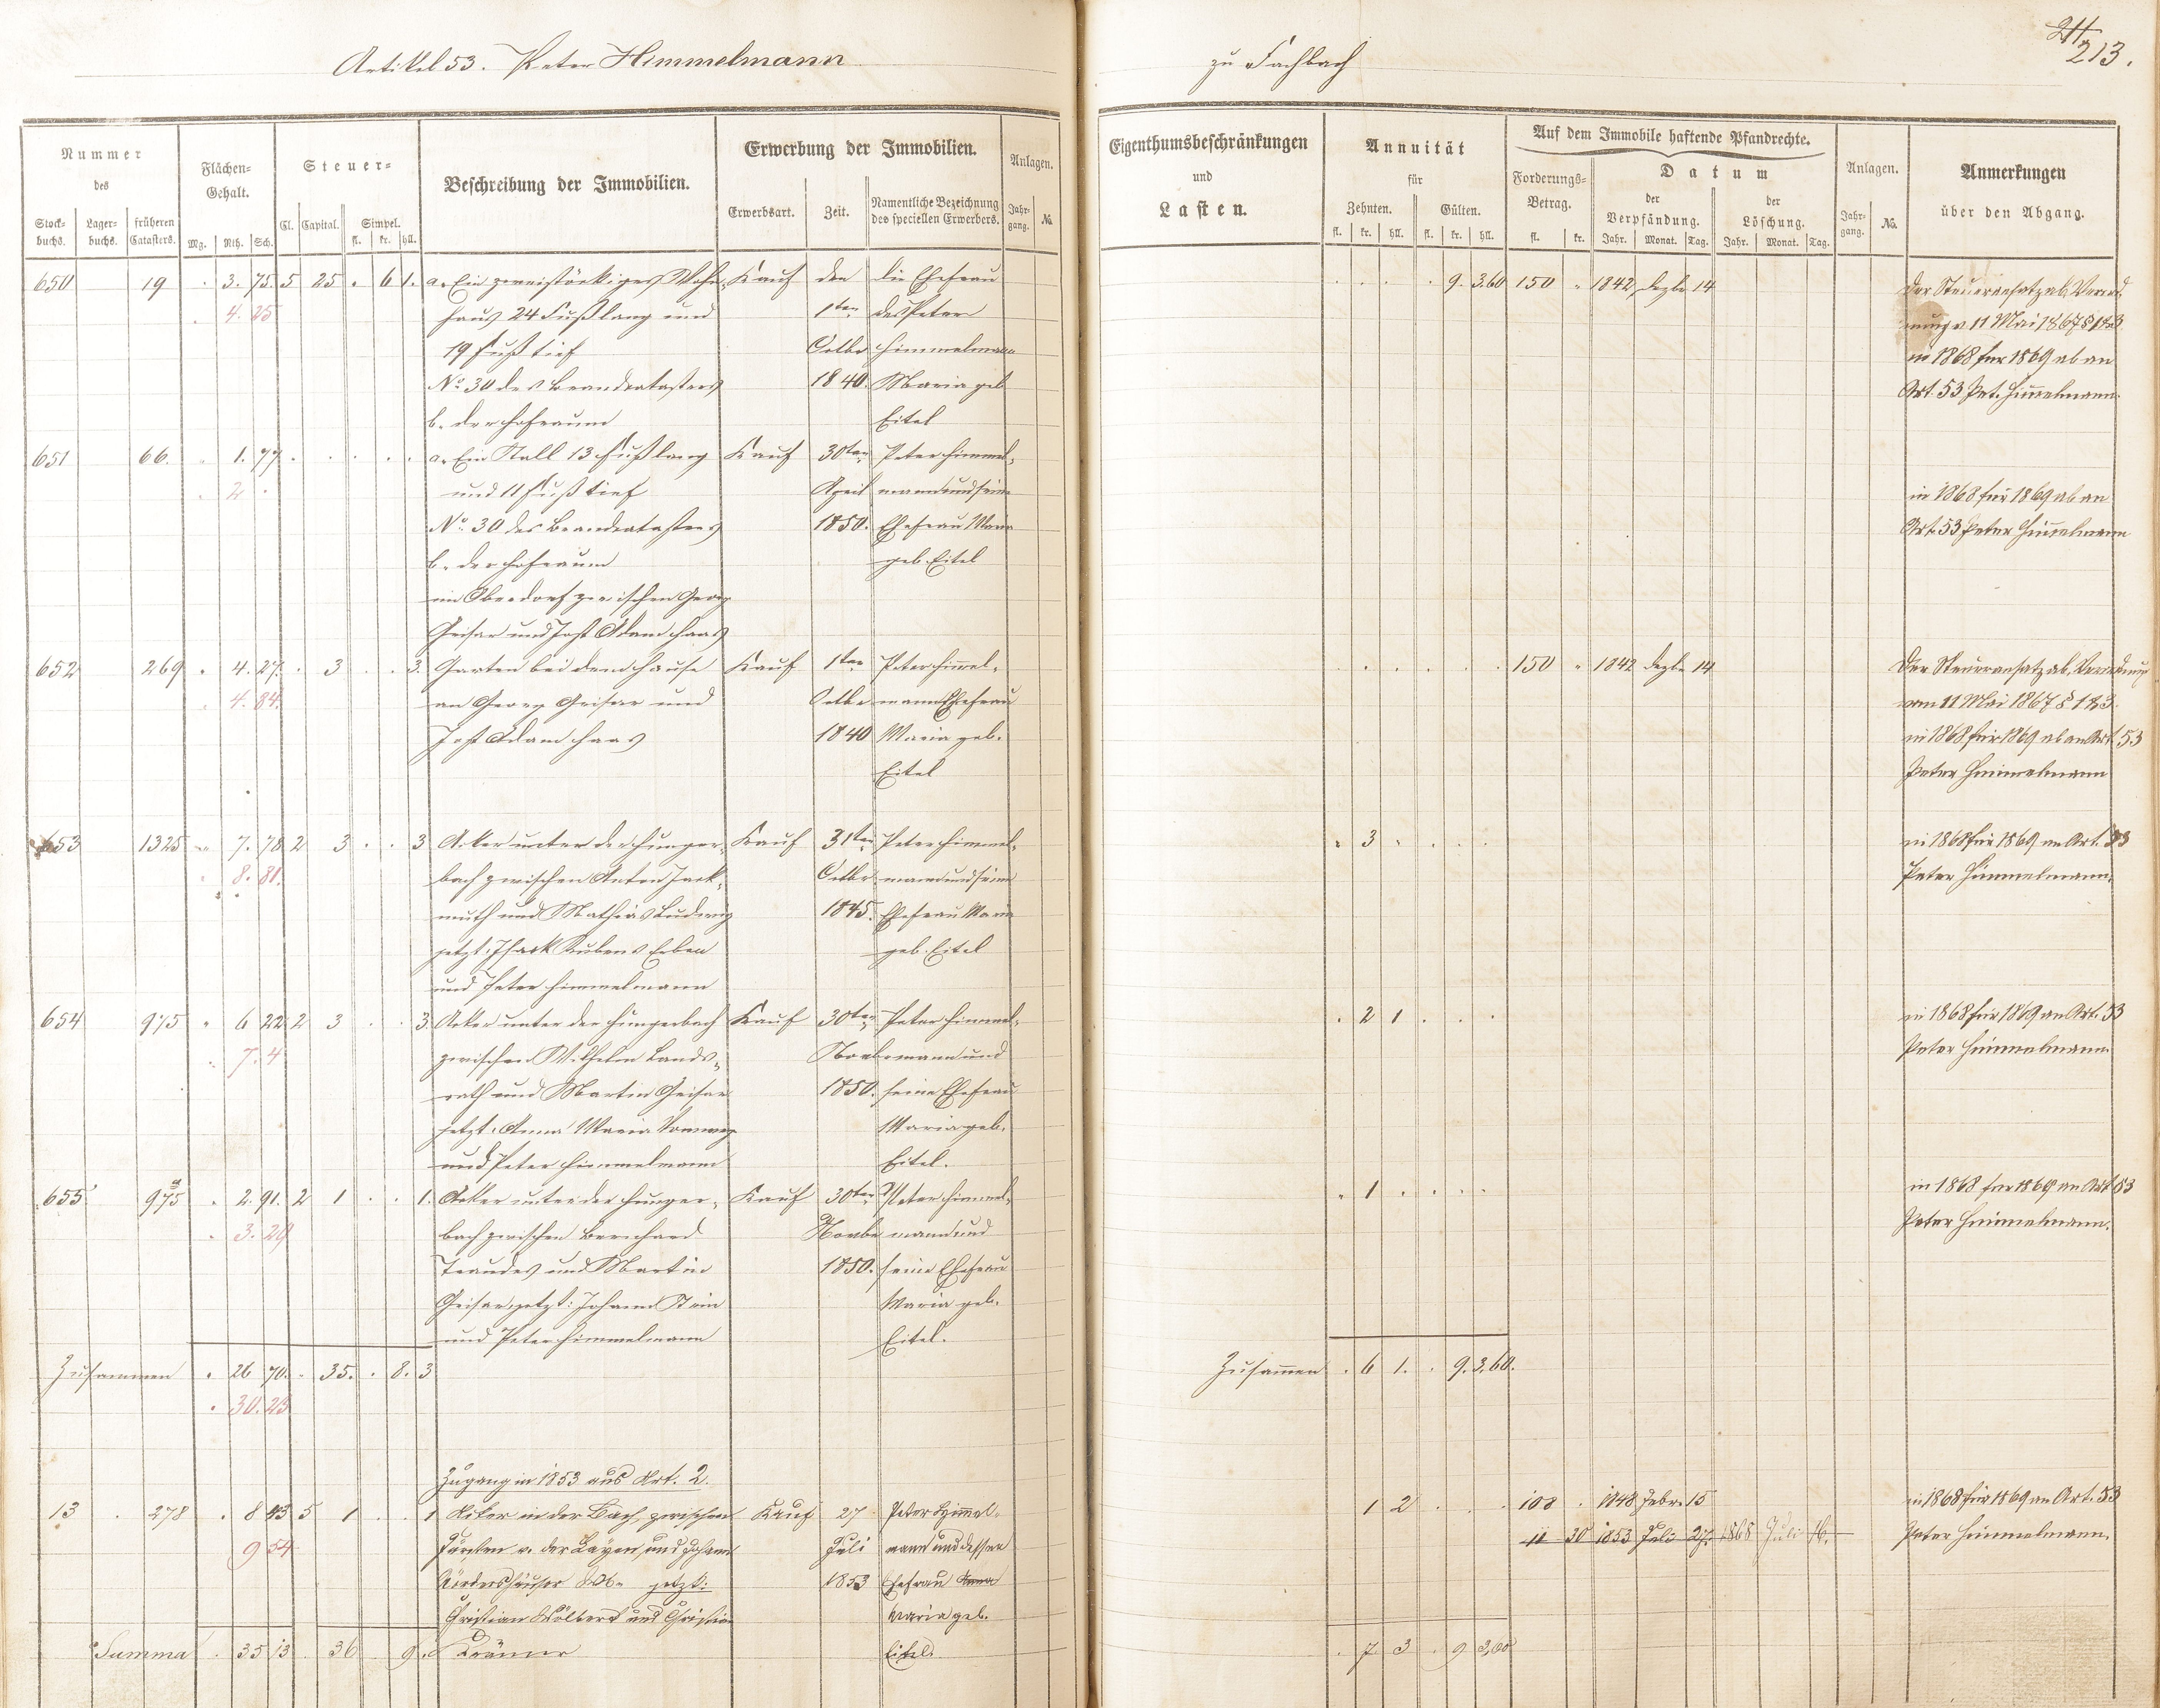 Artikel 53. Peter Himmelmann
zu Fachbach
213.
Nummer
des
Stock-
buchs.
Lager-
buchs.
früheren
Catasters.
Flächen-
Gehalt.
Mg. Rth. Sch.
Steuer-
Cl. Capital. Simpel.
fl. kr. hll.
Beschreibung der Immobilien.
Erwerbung der Immobilien.
Erwerbsart. Zeit.
Namentliche Bezeichnung
des speciellen Erwerbers.
Anlagen.
Jahr-
gang. No.
Eigenthumsbeschränkungen
und
Lasten.
Annuität
für
Zehnten. Gülten.
fl. kr. hll. fl. kr. hll.
Auf dem Immobile haftende Pfandrechte.
Forderungs-
Betrag.
fl. kr.
Datum
der
Verpfändung.
Jahr. Monat. Tag.
der
Löschung.
Jahr. Monat. Tag.
Anlagen.
Jahr-
gang. No.
Anmerkungen
über den Abgang.
650 19 . 3. 75. 5 25 . 6 1. a. Ein zweistöckiges Wohn- Kauf den die Ehefrau . . . . 9. 3.60 150 . 1842 Dezbr 14 Der Steueransatz ab, Verord-
. 4. 25 haus 24 Fuß lang und 1ten des Peter nung v 11 Mai 1867 § 1 &3
19 Fuß tief Octbr Himmelmann in 1868 für 1869 ab an
No 30 des Brandcatasters 1840. Maria geb Art. 53 Pet. Himmelmann.
b. der Hofraum Eitel
651 66. . 1. 77. . . . . . a. Ein Stall 13 Fuß lang Kauf 30ten Peter Himmel-
. 2 . und 11 Fuß tief April mann und seine in 1868 für 1869 ab an
No 30 des Brandcatasters 1850. Ehefrau Maria Art. 53 Peter Himmelmann
b. der Hofraum geb. Eitel
im Oberdorf zwischen Georg
Geisar und Jost Adam Haas
652 269 . 4. 27. . 3 . . 3. Garten bei dem Hause Kauf 1ten Peter Himmel- . . . . . . 150 . 1842 Dezbr 14 Der Steueransatz ab, Verordnung
. 4. 84. an Georg Geisar und Octbr manns Ehefrau vom 11 Mai 1867 § 1 &3.
Jost Adam Haas 1840 Maria geb. in 1868 für 1869 ab an Art. 53
Eitel Peter Himmelmann
653 1325 . 7. 78 2 3 . . 3 Acker unter der Hunger- Kauf 31ten Peter Himmel- . 3 . . . . in 1868 für 1869 an Art. 53
. 8. 81. bach zwischen Anton Jack- Octbr mann und seine Peter Himmelmann.
muth und Mathias Ludwig 1845. Ehefrau Maria
jetzt: Isaak Rubens Erben geb. Eitel
und Peter Himmelmann
654 975 . 6 22 2 3 . . 3 Acker unter der Hungerbach Kauf 30ten Peter Himmel- . 2 1 . . . in 1868 für 1869 an Art. 53
. 7. 4 zwischen Wilhelm Lands- Novbr mann und Peter Himmelmann.
rath und Martin Geisar 1850. seine Ehefrau
jetzt: Anna Maria Maria geb.
und Peter Himmelmann Eitel.
655 975 a . 2. 91. 2 1 . . 1. Acker unter der Hunger- Kauf 30ten Peter Himmel- . 1 . . . . in 1868 für 1869 an Art. 53
. 3. 29 bach zwischen Bernhard Novbr mann und Peter Himmelmann.
und Martin 1850. seine Ehefrau
Geisar, jetzt: Johann Stein Maria geb.
und Peter Himmelmann Eitel.
Zusammen . 26 70. . 35. . 8. 3 Zusammen . 6 1. . 9. 3,60.
. 30. 23
Zugang in 1853 aus Art. 2.
13 . 278 . 8 43 5 1 . . 1 Acker in der Bach, zwischen Kauf 27 Peter Himmel- 1 2 . . . 108 . 1848 Febr. 15 in 1868 für 1869 an Art. 53
9 54 Fürsten v. der Layen, und Johann Juli mann und dessen 11 30 1853 Juli 27. 1868 Juli 16. Peter Himmelmann.
jetzt: 1853 Ehefrau Anna
Christian Wölbert und Christian Maria geb.
Summa . 35 13 . 36 . 9 . Krämer Eitel. . 7 3 . 9 3,60